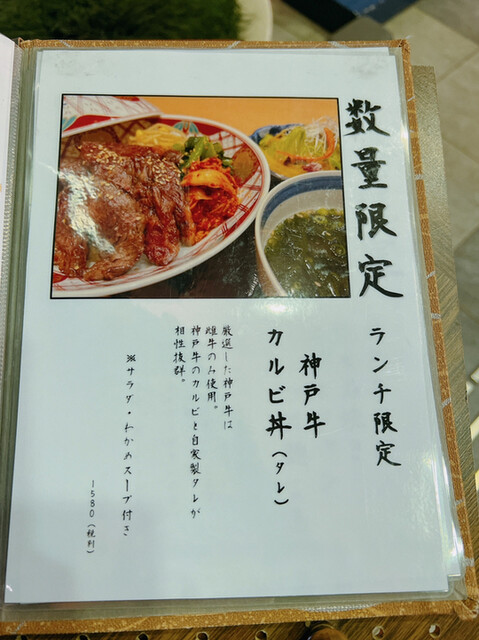 数量限定
ランチ限定
神戸牛
カルビ丼(タレ)
厳選した神戸牛は
雌牛のみ使用。
神戸牛のカルビと自家製タレが
相性抜群。
※サラダ・わかめスープ付き
1580(税別)